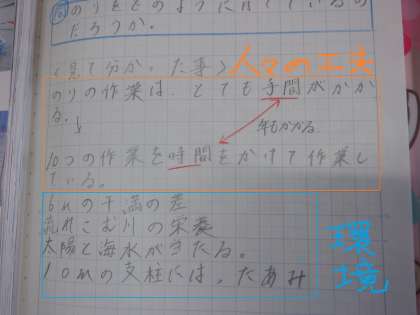 のりをどのように作っているの
だろうか。
〈見て分かった事〉人々の工夫
のりの作業は、とても手間がかか
る。
年もかかる
10つの作業を時間をかけて作業し
ている。
6mの干満の差
流れこむ川の栄養
太陽と海水がきたる。
10mの支柱には、たあみ
環境